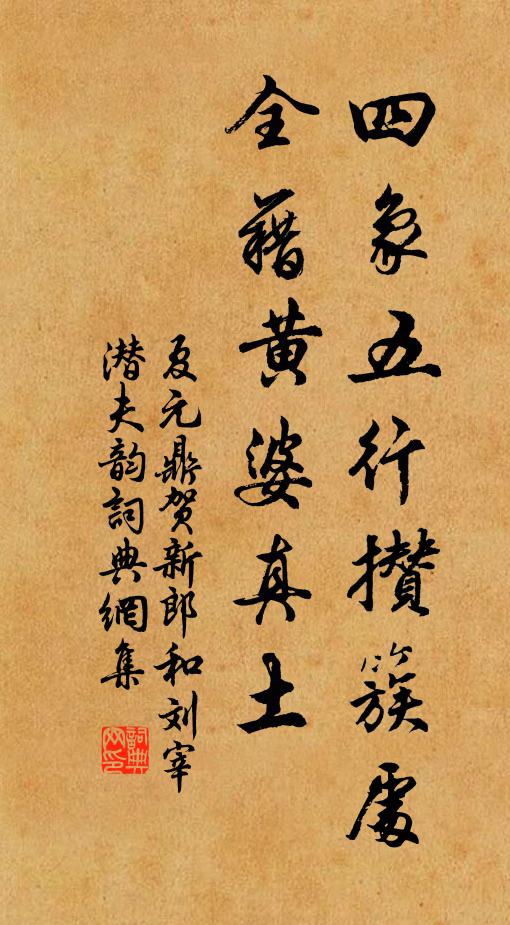 四象五行攒簇處
全藉黄婆真土
夏元鼎贺新郎和刘宰
潜夫韵詞典網集
詞典
网印